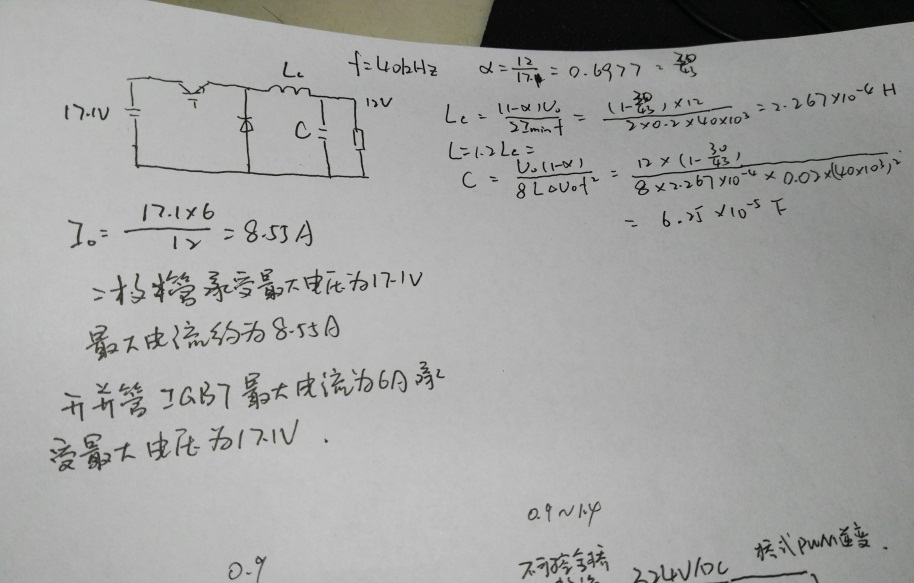 Lc f=40kHz α=12/17.1=0.6977=30/43
17.1V T C 12V
Lc=(1-α)U₀/2Iminf=(1-30/43)×12/2×0.2×40×10³=2.267×10⁻⁴H
L=1.2Lc=
C=U₀(1-α)/8L△U₀f²=12×(1-30/43)/8×2.267×10⁻⁴×0.02×(40×10³)²
=6.25×10⁻⁵F
I₀=17.1×6/12=8.55A
二极管承受最大电压为17.1V
最大电流约为8.55A
开关管IGBT最大电流为6A承
受最大电压为17.1V.
0.9~1.4
0.9
不可控全桥 324V/DC 桥式PWM逆变.